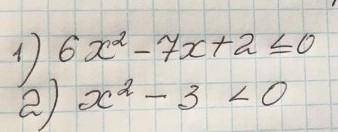 1) 6x² - 7x + 2 ≤ 0
2) x² - 3 < 0